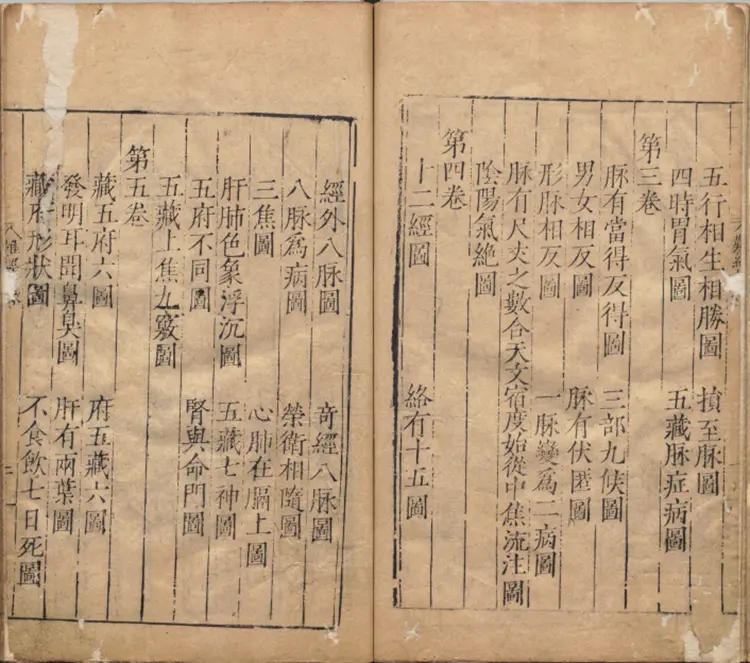 五行相生相勝圖　損至脉圖
四時胃氣圖　五藏脉症病圖
第三卷
脉有當得反得圖　三部九候圖
男女相反圖　脉有伏匿圖
形脉相反圖　一脉變為二病圖
脉有尺丈之數合天文宿度始從中焦流注圖
陰陽氣絶圖
第四卷
十二經圖　絡有十五圖
經外八脉圖　奇經八脉圖
八脉為病圖　榮衛相隨圖
三焦圖　心肺在膈上圖
肝肺色象浮沉圖　五藏七神圖
五府不同圖　腎與命門圖
五藏上焦九竅圖
第五卷
藏五府六圖　府五藏六圖
發明耳聞鼻臭圖　肝有兩葉圖
藏府形狀圖　不食飲七日死圖